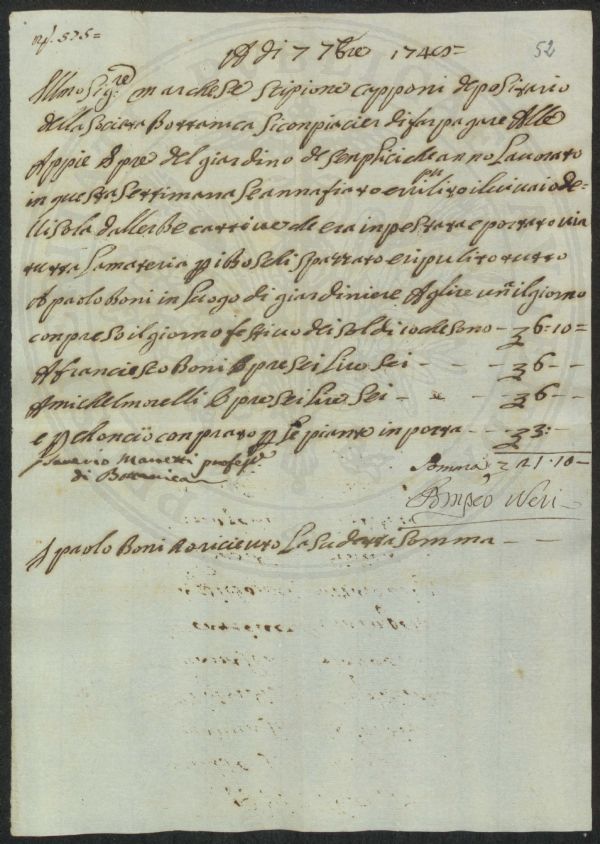 N. 575=
A di 7 7bre 1740=
52
Illmo Sigre marchese Scipione Capponi depositario
della Società Bottanica si conpiacier di far pagare Alle
Appie opre del giardino de senplici che anno Lavorato
in questa settimana Se annafiato e pulito il vivaio de=
llisola dallerbe cattive che era inpestata e portato via
tutta La materia p i Boscli spazzato e ripulito tutto
A paolo Boni in Luogo di giardiniere A glire un il giorno
conpreso il giorno festivo di soldi 10 che sono - 6=10=
A franciesco Boni opre sei Lire Sei - - - 6 - -
A michel morelli opre sei Lire Sei - - - 6 - -
e p chonciо conprato p Le piante in potta - - - 3: -
Saverio Manetti profesr.
di Bottanica
Somma 21.10 -
Pompeo Neri
A paolo Boni o ricieuto La sudetta Somma - -